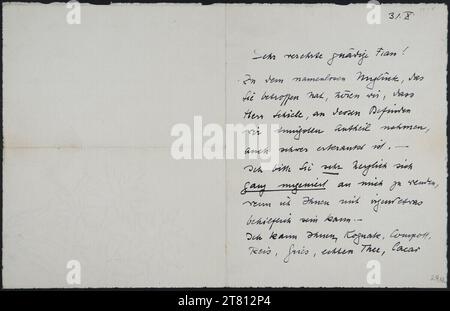 31. X
Sehr verehrte gnädige Frau!
Zu dem namenlosen Unglück, das
Sie betroffen hat, hören wir, dass
Herr Schiele, an dessen Befinden
wir innigsten Antheil nehmen,
auch schwer erkrankt ist. —
Ich bitte Sie sehr herzlich sich
ganz ungeniert an mich zu wenden,
wenn ich Ihnen mit irgendetwas
behilflich sein kann. —
Ich kann Ihnen, Kognak, Compott,
Reis, Gries, echten Thee, Cacao
alamy
Image ID: 2T812P4
www.alamy.com